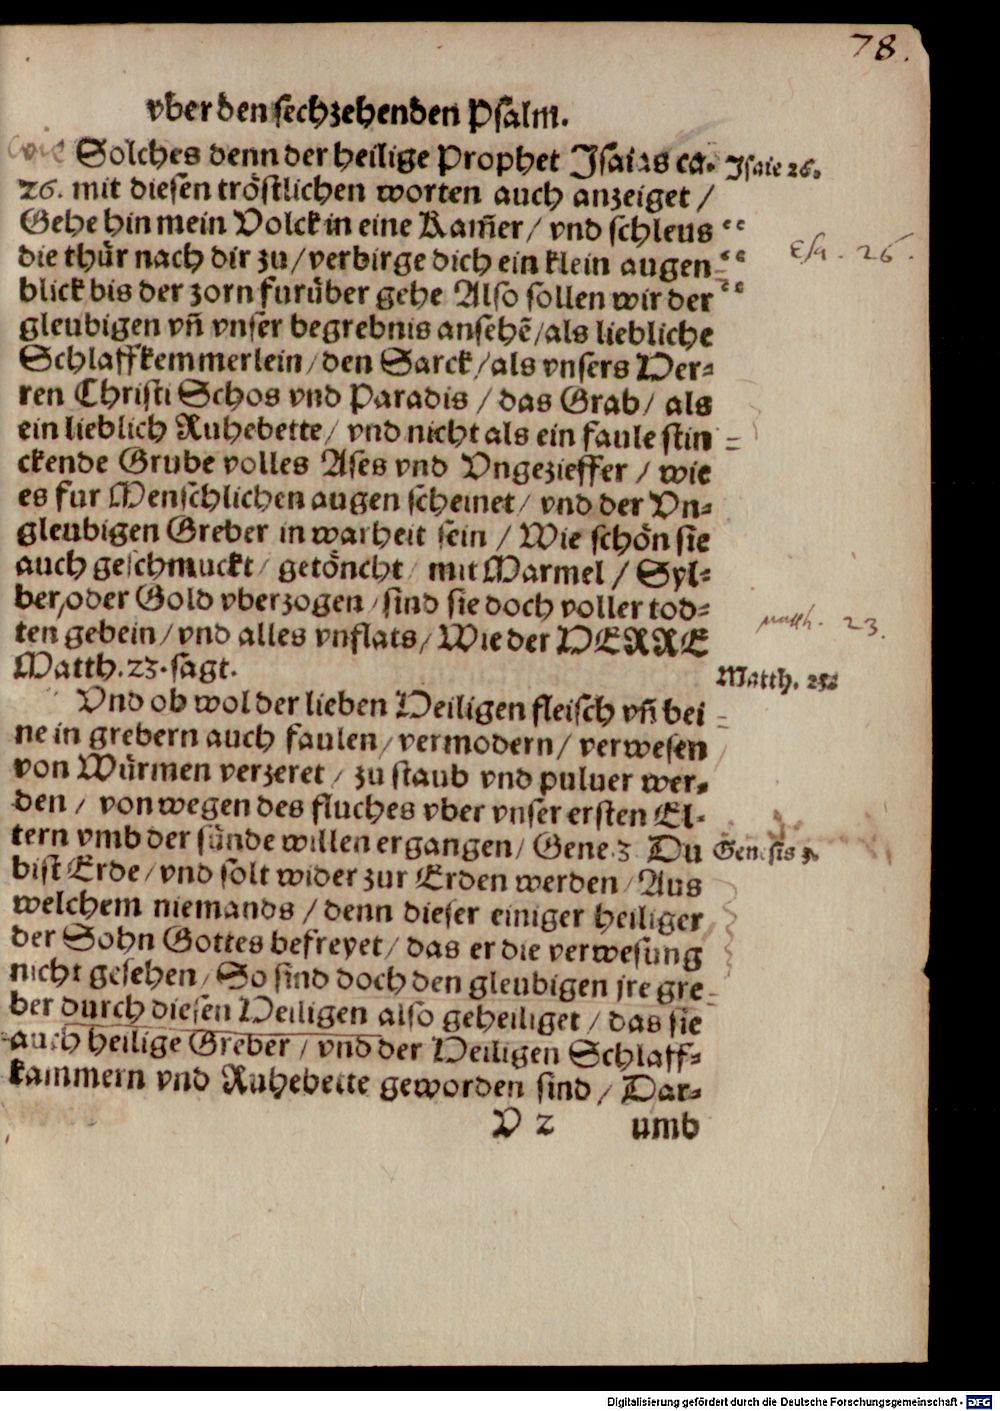 78.
vber den sechzehenden Psalm.
Solches denn der heilige Prophet Jsaias ca. Jsaie 26.
26. mit diesen tröstlichen worten auch anzeiget /
Gehe hin mein Volck in eine Kam̃er / vnd schleus “
die thür nach dir zu / verbirge dich ein klein augen- “
blick bis der zorn furüber gehe Also sollen wir der “
Esa. 26.
gleubigen vñ vnser begrebnis ansehẽ / als liebliche
Schlaffkemmerlein / den Sarck / als vnsers Her-
ren Christi Schos vnd Paradis / das Grab / als
ein lieblich Ruhebette / vnd nicht als ein faule stin-
ckende Grube volles Ases vnd Vngezieffer / wie
es fur Menschlichen augen scheinet / vnd der Vn-
gleubigen Greber in warheit sein / Wie schön sie
auch geschmuckt / getöncht / mit Marmel / Syl-
ber / oder Gold vberzogen / sind sie doch voller tod-
ten gebein / vnd alles vnflats / Wie der HERRE
Matth. 23. sagt.
23.
Matth. 23.
Vnd ob wol der lieben Heiligen fleisch vñ bei-
ne in grebern auch faulen / vermodern / verwesen
von Würmen verzeret / zu staub vnd puluer wer-
den / von wegen des fluches vber vnser ersten El-
tern vmb der sünde willen ergangen / Gene. 3 Du Genesis 3.
bist Erde / vnd solt wider zur Erden werden / Aus
welchem niemands / denn dieser einiger heiliger
der Sohn Gottes befreyet / das er die verwesung
nicht gesehen / So sind doch den gleubigen jre gre-
ber durch diesen Heiligen also geheiliget / das sie
auch heilige Greber / vnd der Heiligen Schlaff-
kammern vnd Ruhebette geworden sind / Dar-
V 2 umb
Digitalisierung gefördert durch die Deutsche Forschungsgemeinschaft - DFG